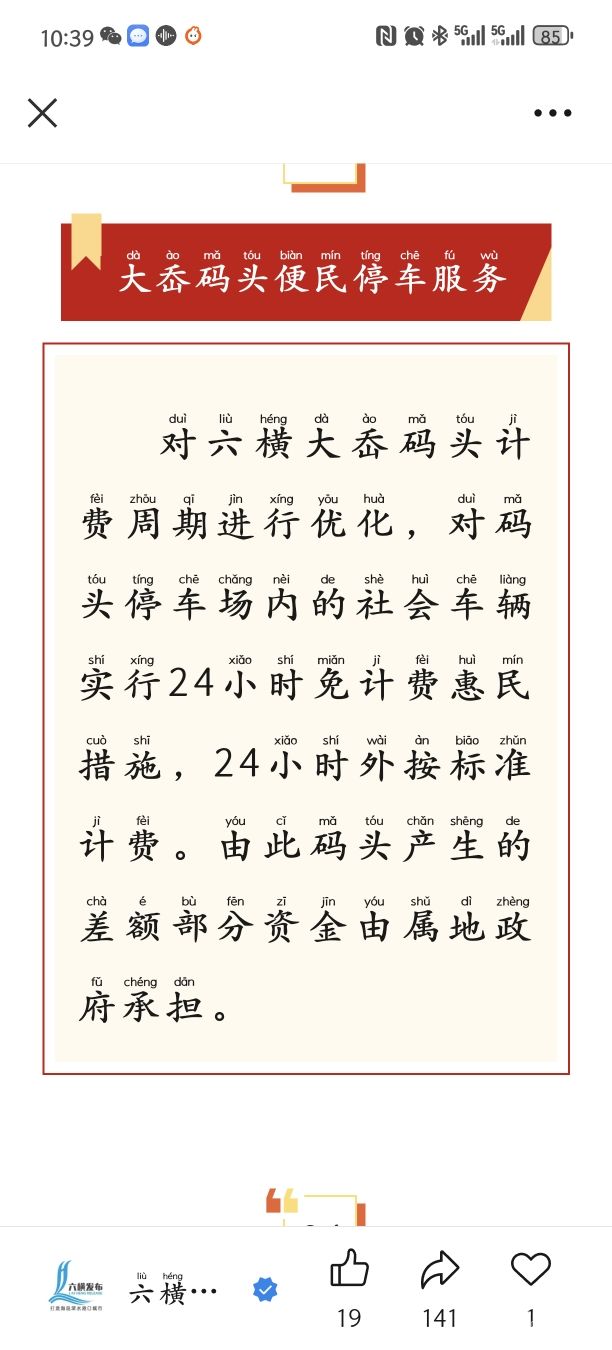 10:39
5G 5G 85
dà ào mǎ tóu biàn mín tíng chē fú wù
大岙码头便民停车服务
duì liù héng dà ào mǎ tóu jì
对六横大岙码头计
fèi zhōu qī jìn xíng yōu huà duì mǎ
费周期进行优化，对码
tóu tíng chē chǎng nèi de shè huì chē liàng
头停车场内的社会车辆
shí xíng xiǎo shí miǎn jì fèi huì mín
实行24小时免计费惠民
cuò shī xiǎo shí wài àn biāo zhǔn
措施，24小时外按标准
jì fèi yóu cǐ mǎ tóu chǎn shēng de
计费。由此码头产生的
chà é bù fēn zī jīn yóu shǔ dì zhèng
差额部分资金由属地政
fǔ chéng dān
府承担。
六横发布
liù héng
六横…
19
141
1